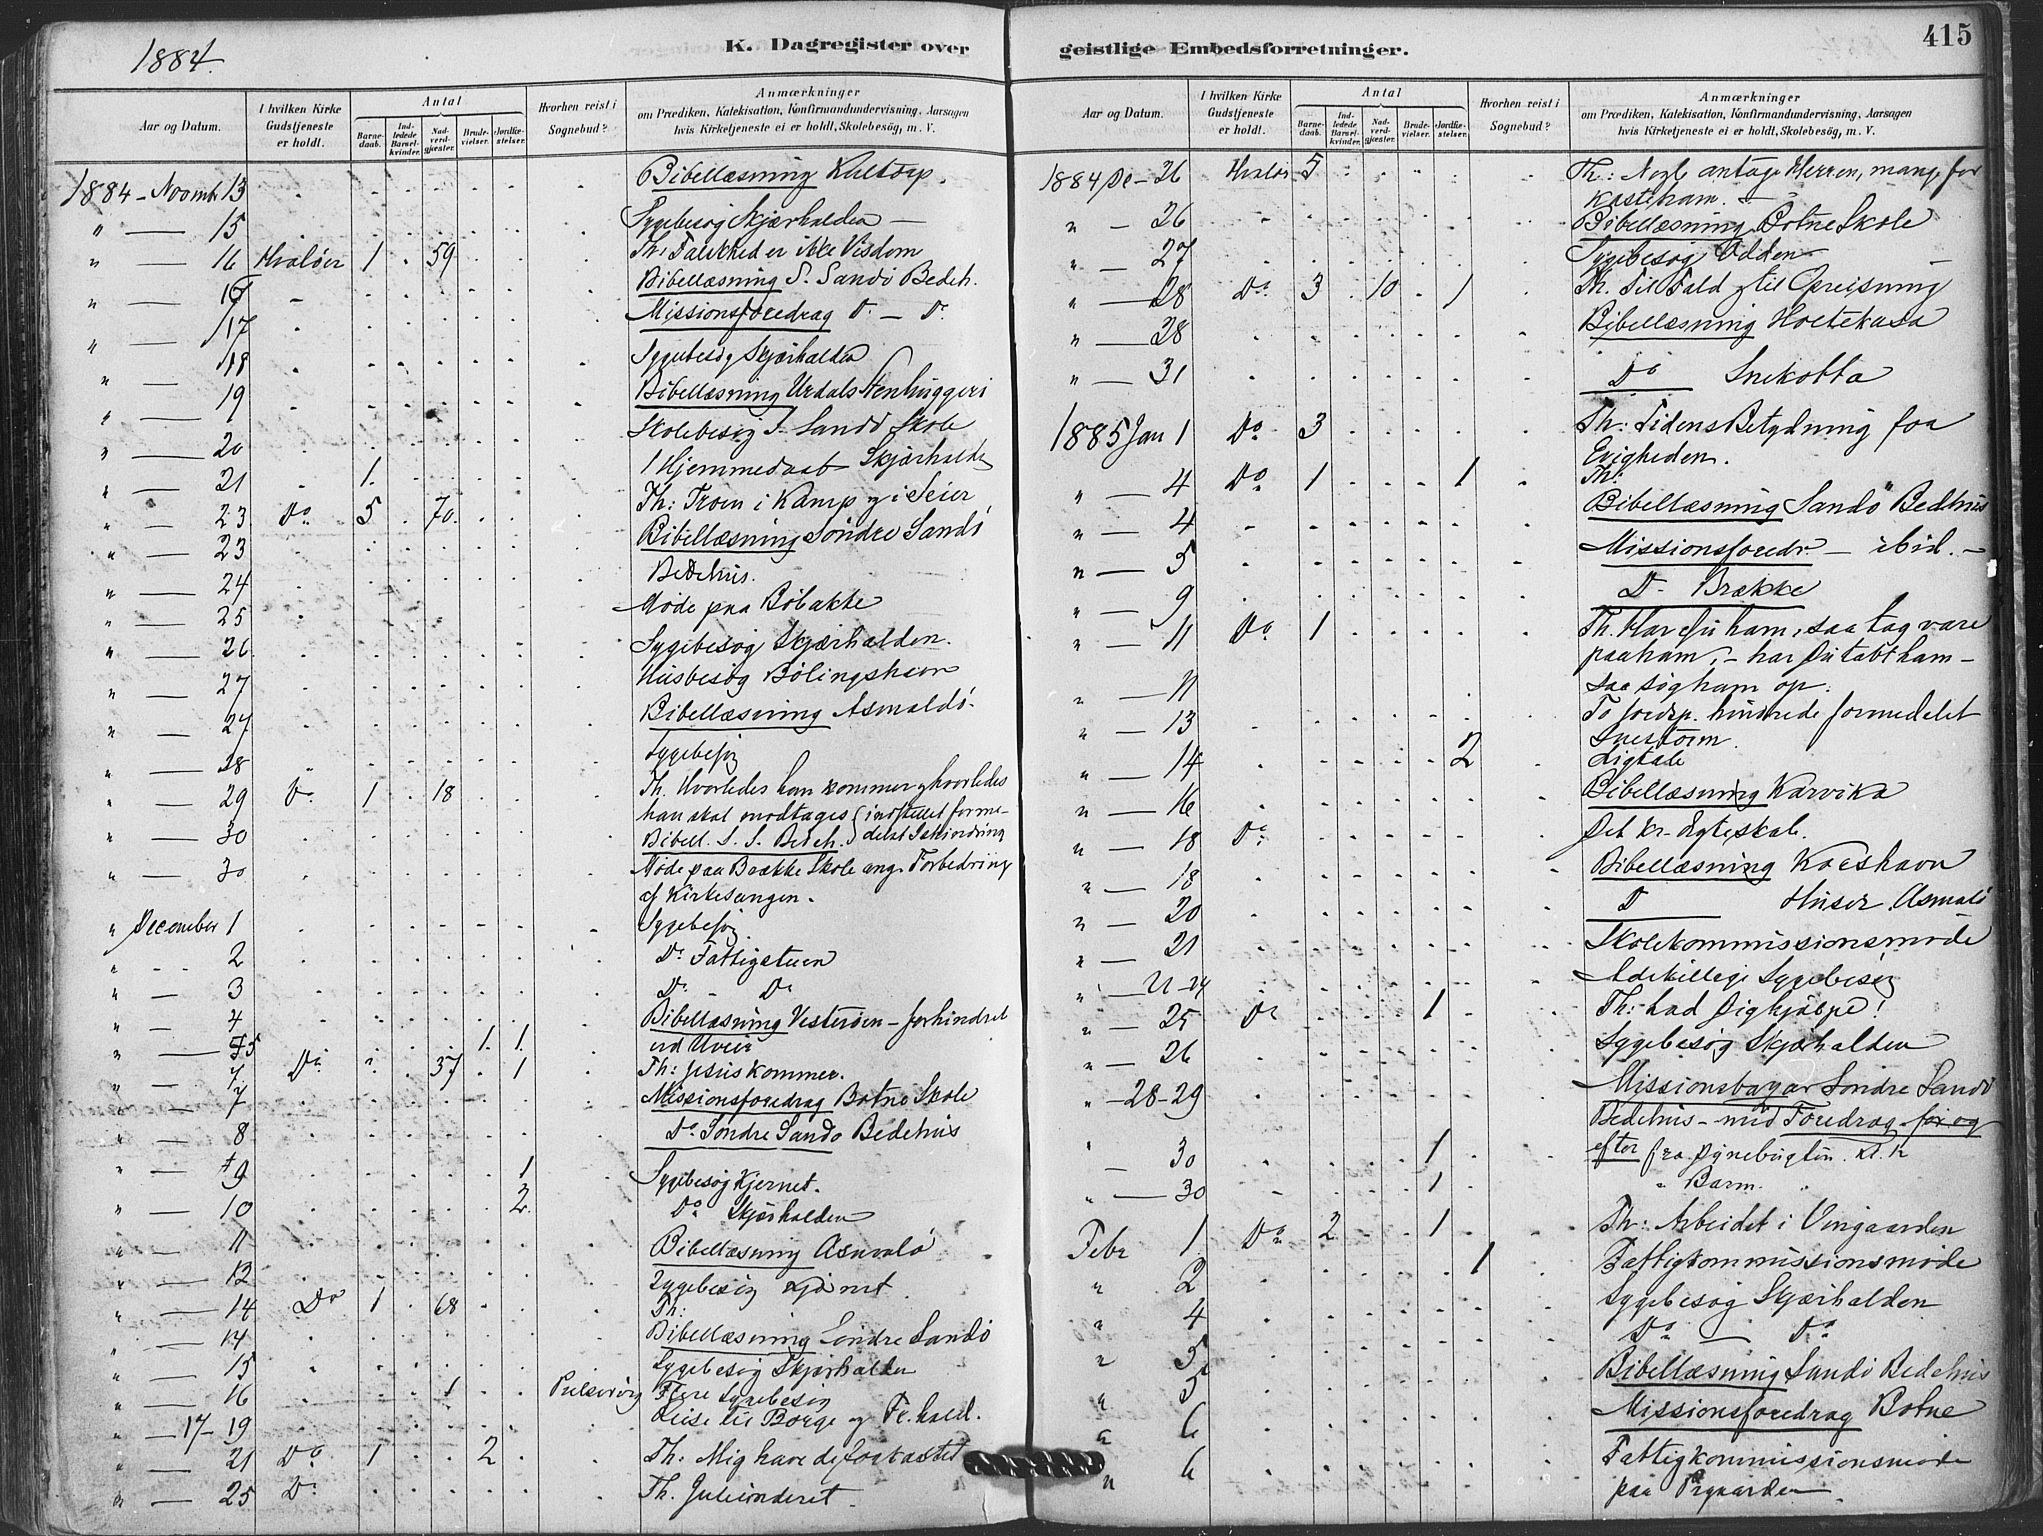 1884.
K. Dagregister over
Aar og Datum.
I hvilken Kirke Gudstjeneste er holdt.
Antal
Barne-daab.
Ind-ledede Barsel-kvinder.
Nad-verd-gjæster.
Brude-vielser.
Jordfæ-stelser.
Hvorhen reist i Sognebud?
Anmærkninger
om Prædiken, Katekisation, Konfirmandundervisning, Aarsagen
hvis Kirketjeneste ei er holdt, Skolebesög, m. V.
1884 - Novmb. 13 Bibellæsning
" — 15 Sygebesøg Skjærhalden —
" — 16 Hvaløer 1 59 Th: Falskhed er ikke Visdom
" — 16 Bibellæsning S. Sandö Bedeh.
" — 17 Missionsforedrag D. — D.
" — 18 Sygebesøg Skjærhalden
" — 19 Bibellæsning Urdals Stenhuggeri
" — 20 Skolebesøg S. Sandö Skole
" — 21 1. 1 Hjemmedaab Skjærhalden
" — 23 Do 5 70. Th: Troen i Kamp og i Seier
" — 23 Bibellæsning Söndre Sandö
Bedehus.
" — 24 Møde paa
" — 25 Sygebesøg Skjærhalden.
" — 26 Husbesøg
" — 27 Bibellæsning Asmalö.
" — 27
" — 28 Sygebesøg
" — 29 Do 1 18 Th. Hvorledes han kommer og hvorledes
han skal modtages
" — 30 Bibell. S. S. Bedeh. (indstillet forme-
delst
" — 30 Møde paa Brække Skole ang. Forbedring
af Kirkesangen.
" December 1 Sygebesøg
" — 2 Do Fattigstuen
" — 3 Do - Do
" — 4 Bibellæsning Vesterøen - forhindret
ved Uveir
" — 5 1. 1.
" — 7 Do 37 1 Th: Jesus kommer.
" — 7 Missionsforedrag Botne Skole
" — 8 Do Söndre Sandö Bedehus
" — 9 1 Sygebesøg Kjernet.
" — 10 2. Do Skjærhalden
" — 11 Bibellæsning Asmalö
" — 12 Sygebesøg
" — 14 Do 1 68 Th:
" — 14 Bibellæsning Söndre Sandö
" — 15 Sygebesøg Skjærhalden
" — 16 1 Flere Sygebesøg
" — 17-19 Reise til Borge og Fr.hald.
" — 21 Do 1 2 Th: Mig have de forkastet
" — 25 Do Th. Juleunderet.
415
geistlige Embedsforretninger.
Aar og Datum.
I hvilken Kirke Gudstjeneste er holdt.
Antal
Barne-daab.
Ind-ledede Barsel-kvinder.
Nad-verd-gjæster.
Brude-vielser.
Jordfæ-stelser.
Hvorhen reist i Sognebud?
Anmærkninger
om Prædiken, Katekisation, Konfirmandundervisning, Aarsagen
hvis Kirketjeneste ei er holdt, Skolebesög, m. V.
1884 De - 26 Hvaløer 5 Th: Nogle antage Herren, mange for
kaste ham. —
" — 26 Bibellæsning Botne Skole
" — 27 Sygebesøg Odden —
" — 28 Do 3 10 1 Th. Til Fald og til Opreisning
" — 28 Bibellæsning
" — 31 Do Snekotta
1885 Jan 1 Do 3 Th: Tidens Betydning for
Evigheden.
" — 4 Do 1 1 Th:
" — 4 Bibellæsning Sandö Bedehus
" — 5 Missionsforedr — ibid. —
" — 9 D - Brække
" — 11 Do 1 Th. Har du ham, saa tag vare
paa ham, - har du tabt ham -
saa søg ham op.
" — 11 To foredr. hindrede formedelst
Snestorm.
" — 13
" — 14 2 Ligtale
" — 16 Bibellæsning Karvika
" — 18 Do Det kr. Egteskab.
" — 18 Bibellæsning Korshavn
" — 20 D Huser Asmalö
" — 21 Skolekommissionsmøde
" — 21-24 Adskillige Sygebesøg
" — 25 Do 1 Th: Lad dig hjælpe!
" — 26 Sygebesøg Skjærhalden
" — 28-29 Missionsbazar Söndre Sandö
Bedehus - med Foredrag før og
efter
" — 30 1 fra
" — 30 1 " Barm.
Febr 1 Do 2 1 Th: Arbeidet i Vingaarden
" 2 1 Fattigkommissionsmøde
" 4 Sygebesøg Skjærhalden
" 5 Do — Do
" 5 Bibellæsning Sandö Bedehus
" 6 Missionsforedrag Botne
" 6 Fattigkommissionsmøde
paa Prgaarden